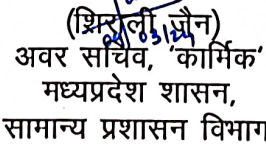 (शिराली जैन)
अवर सचिव, 'कार्मिक'
मध्यप्रदेश शासन,
सामान्य प्रशासन विभाग